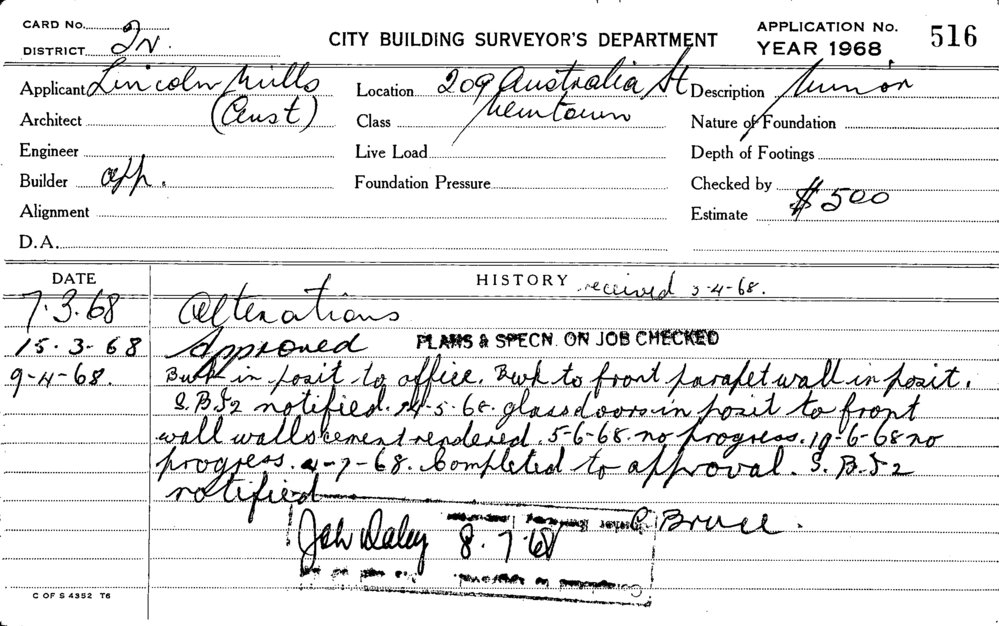 CARD No.
DISTRICT 2N.
CITY BUILDING SURVEYOR'S DEPARTMENT
APPLICATION No. 516
YEAR 1968
Applicant Lincoln Mills
(Aust)
Location 209 Australia St
Newtown
Description Minor
Architect
Class
Nature of Foundation
Engineer
Live Load
Depth of Footings
Builder app.
Foundation Pressure
Checked by
Alignment
Estimate $500
D.A.
DATE
HISTORY received 3-4-68.
7.3.68 Alterations
15.3-68 Approved PLANS & SPECN. ON JOB CHECKED
9-4-68. Bwk in posit to office. Bwk to front parapet wall in posit.
S.B.I2 notified. 24-5-68. glass doors in posit to front
wall walls cement rendered. 5-6-68. no progress. 19-6-68 no
progress. 4-7-68. Completed to approval. S.B.I2
notified
Bruce.
8.7.68
C OF S 4352 T6